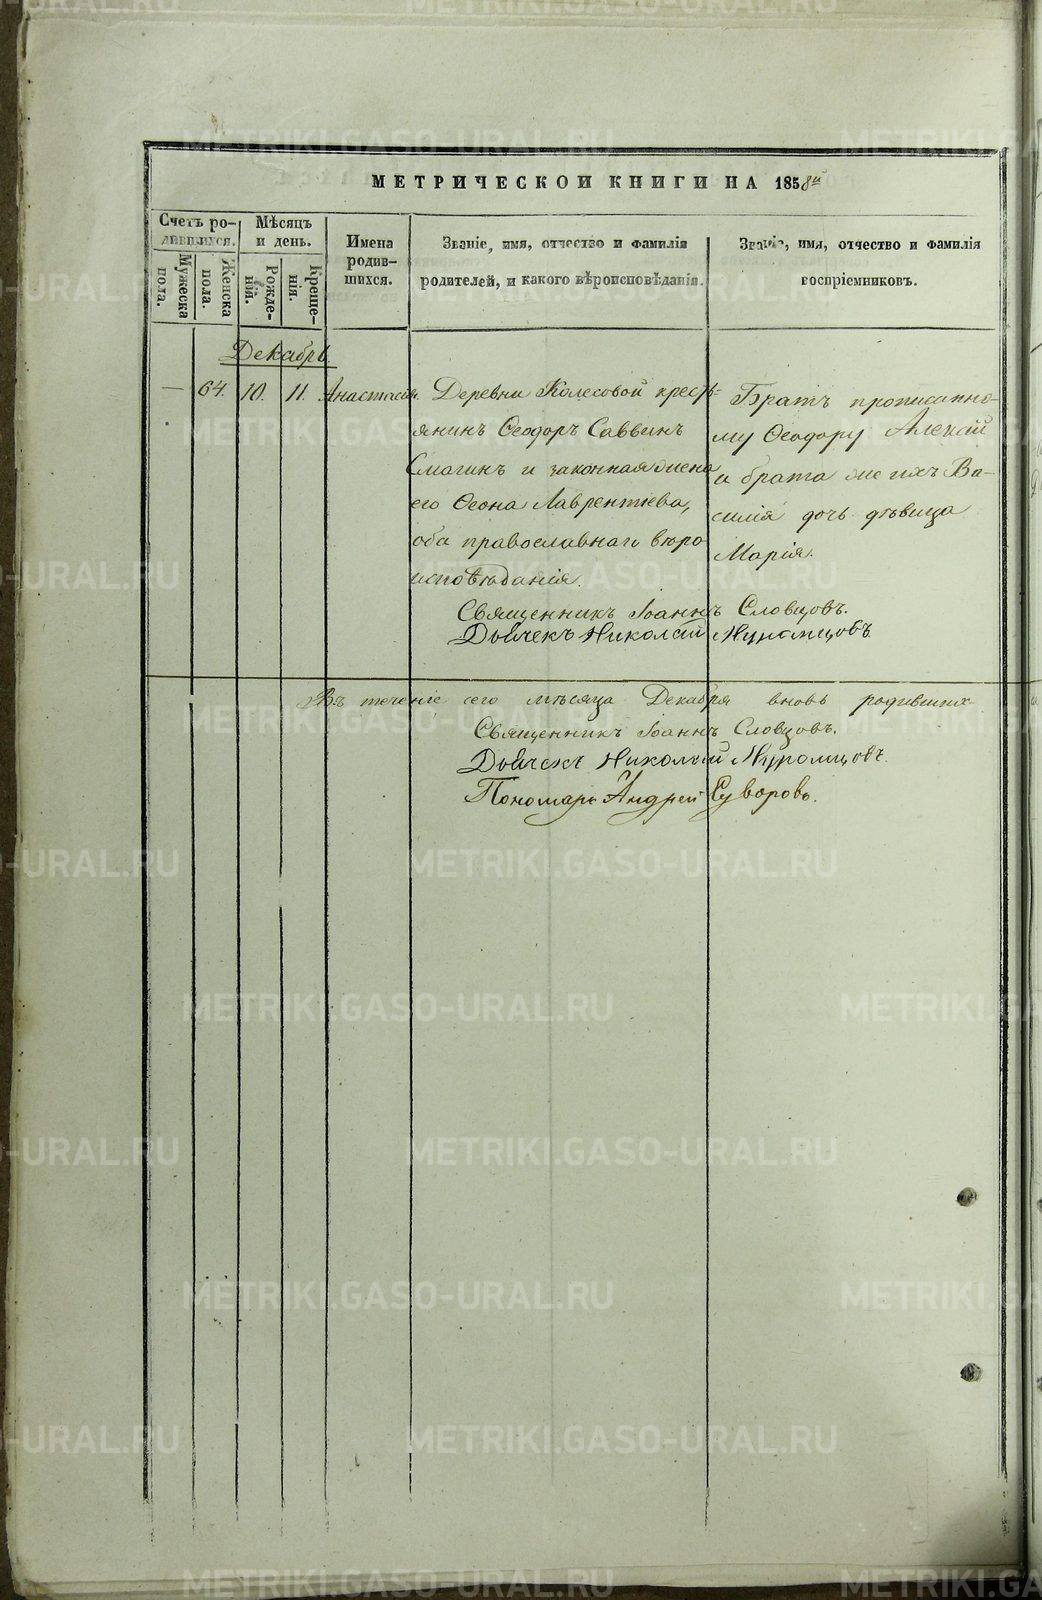 МЕТРИЧЕСКОЙ КНИГИ НА 1858й
Счетъ родившихся.
Мѣсяцъ и день.
Имена родившихся.
Званіе, имя, отчество и фамилія родителей, и какого вѣроисповѣданія.
Званіе, имя, отчество и фамилія воспріемниковъ.
Мужеска пола.
Женска пола.
Рожденій.
Крещенія.
Декабрь
— 64. 10. 11. Анастасія.
Деревни Колесовой кресть-
янинъ Ѳеодоръ Саввинъ
Смагинъ и законная жена
его Ѳеона Лаврентьева,
оба православнаго вѣро
исповѣданія.
Братъ прописанно-
му Ѳеодору Алексѣй
и брата же ихъ Ва-
силія дочь дѣвица
Марія.
Священникъ Іоаннъ Словцовъ.
Дьячекъ Николай Муромцовъ
Въ теченіе сего мѣсяца Декабря вновь родившихся
Священникъ Іоаннъ Словцовъ.
Дьячекъ Николай Муромцовъ.
Пономарь Андрей Суворовъ.
METRIKI.GASO-URAL.RU